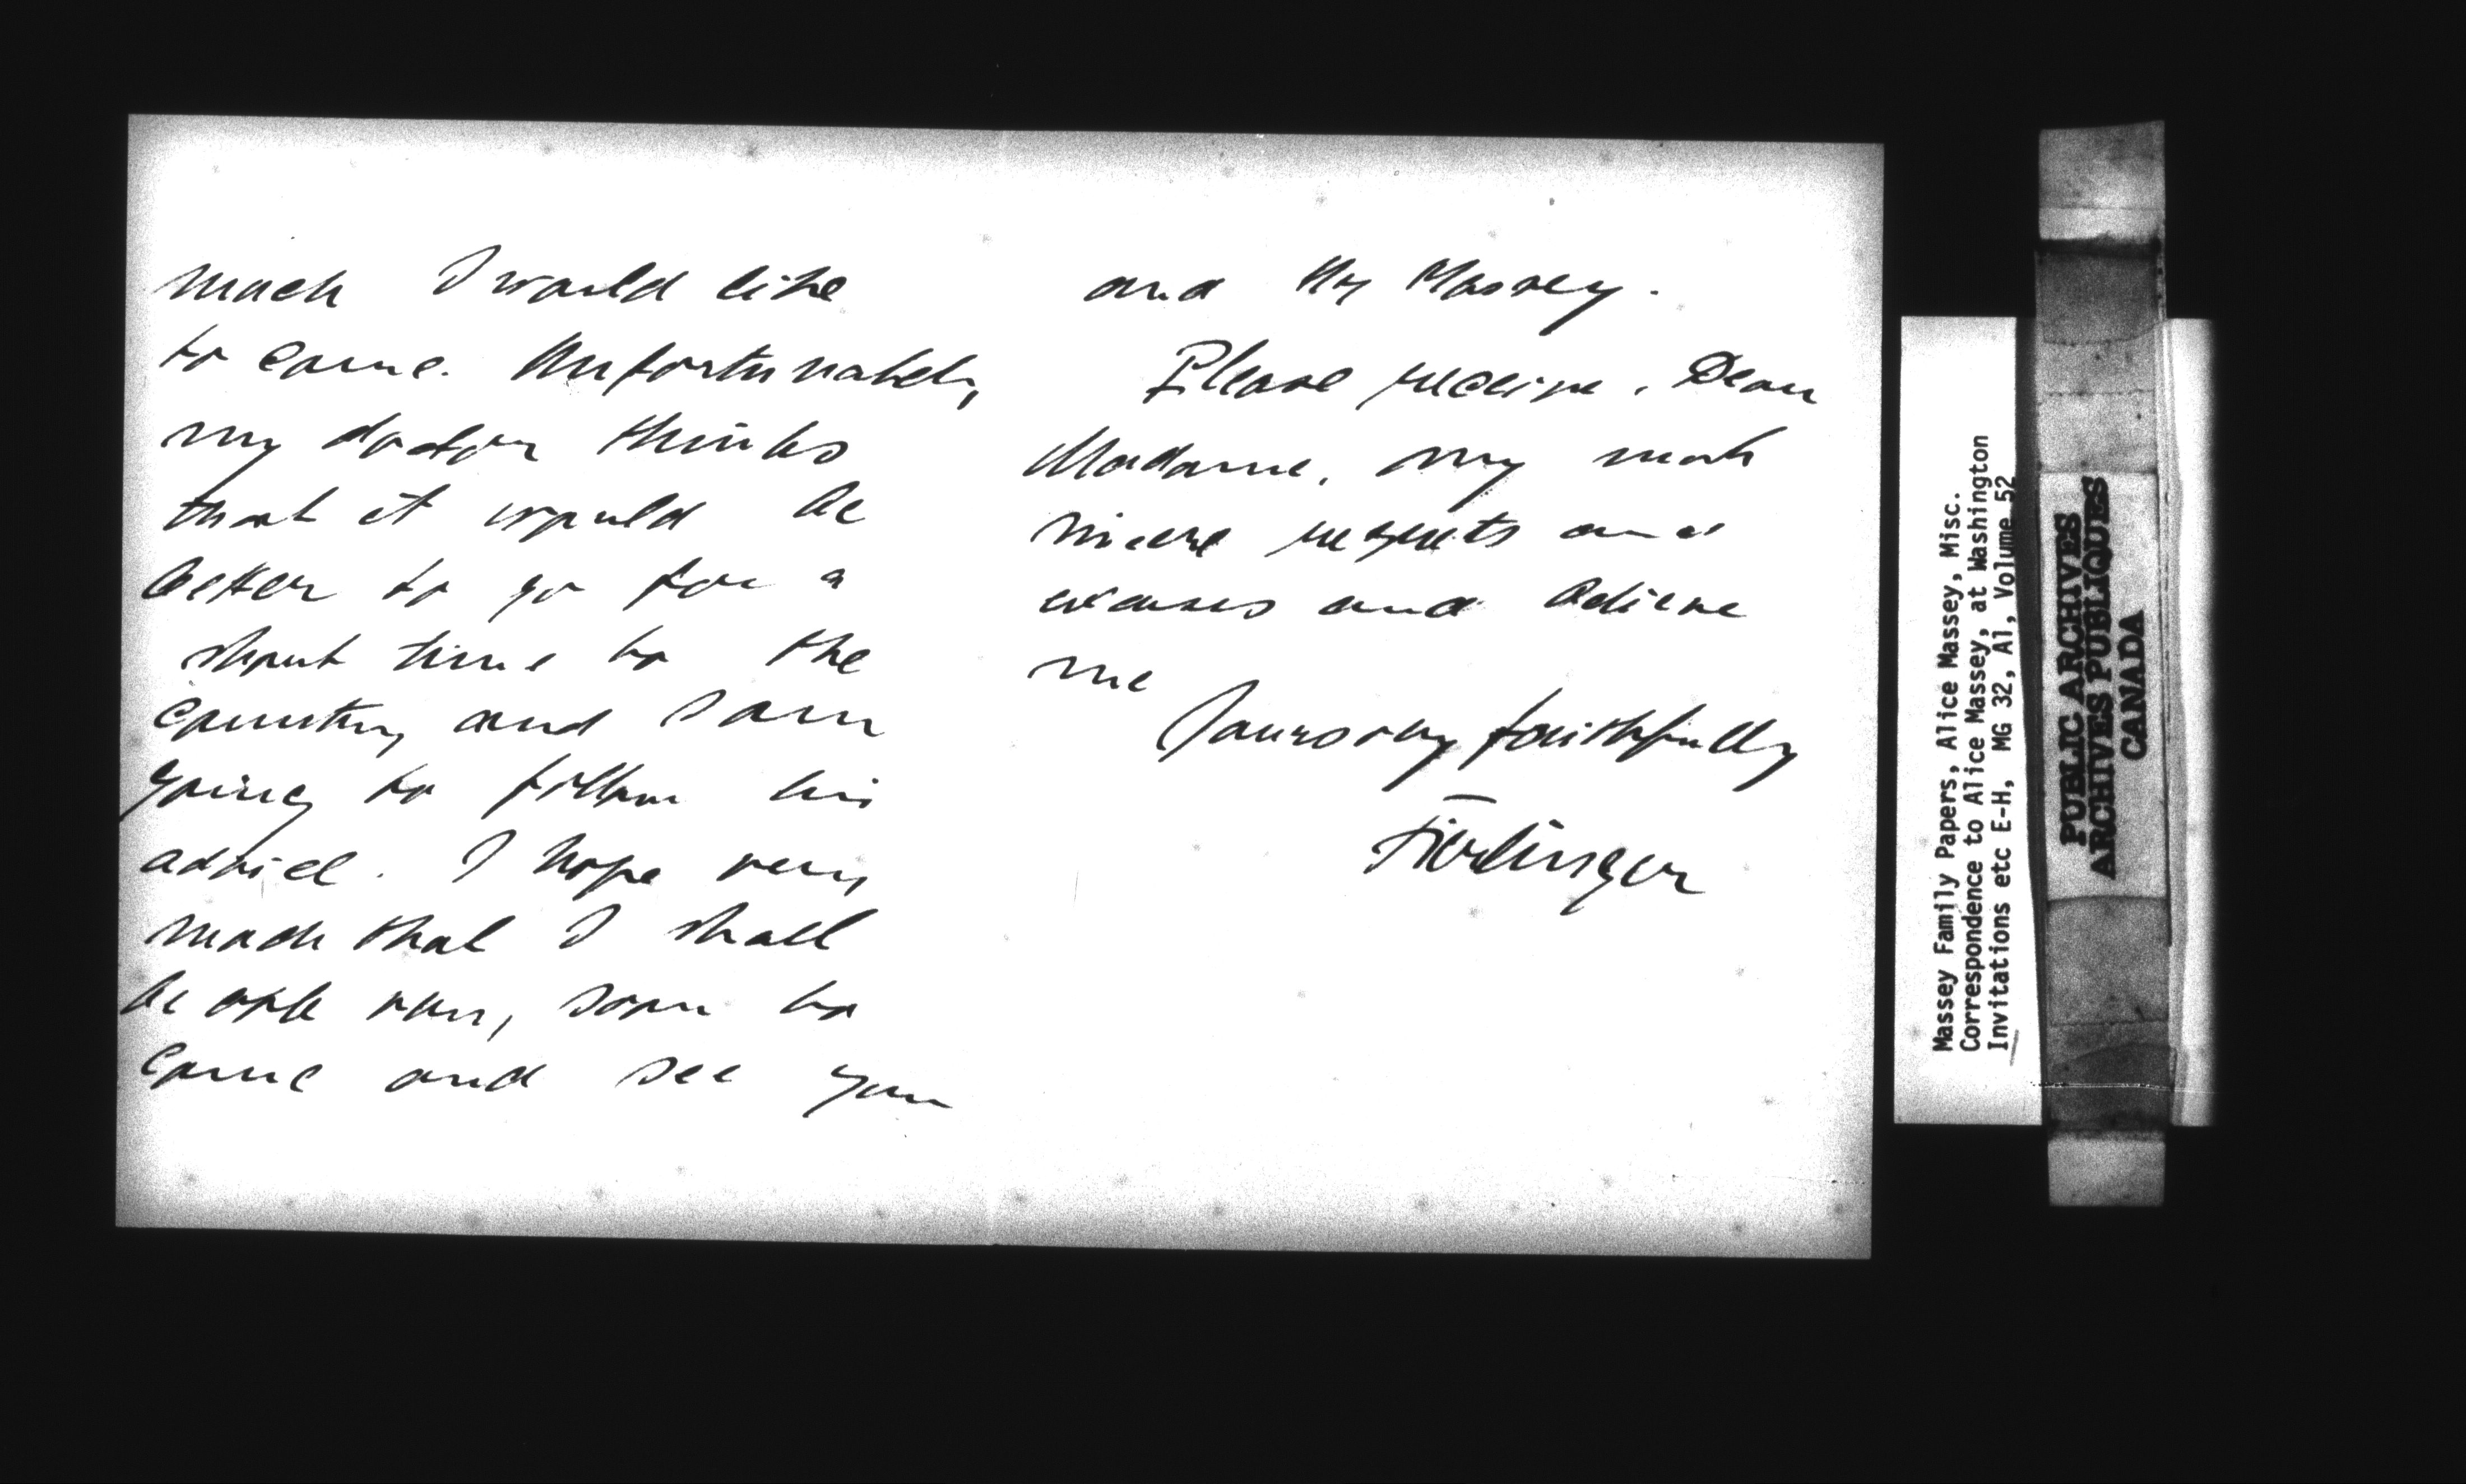 much I would like
to come. Unfortunately
my doctor thinks
that it would be
better to go for a
short time to the
country and I am
going to follow his
advice. I hope very
much that I shall
be able very soon to
come and see you
and Mr Massey.
Please receive, Dear
Madame, my most
sincere regrets and
excuses and believe
me
Yours very faithfully
Fierlinger
Massey Family Papers, Alice Massey, Misc.
Correspondence to Alice Massey, at Washington
Invitations etc E-H, MG 32, A1, Volume 52
PUBLIC ARCHIVES
ARCHIVES PUBLIQUES
CANADA